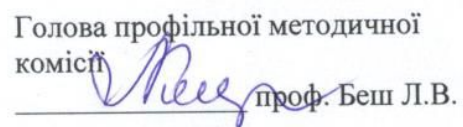 Голова профільної методичної
комісії
проф. Беш Л.В.